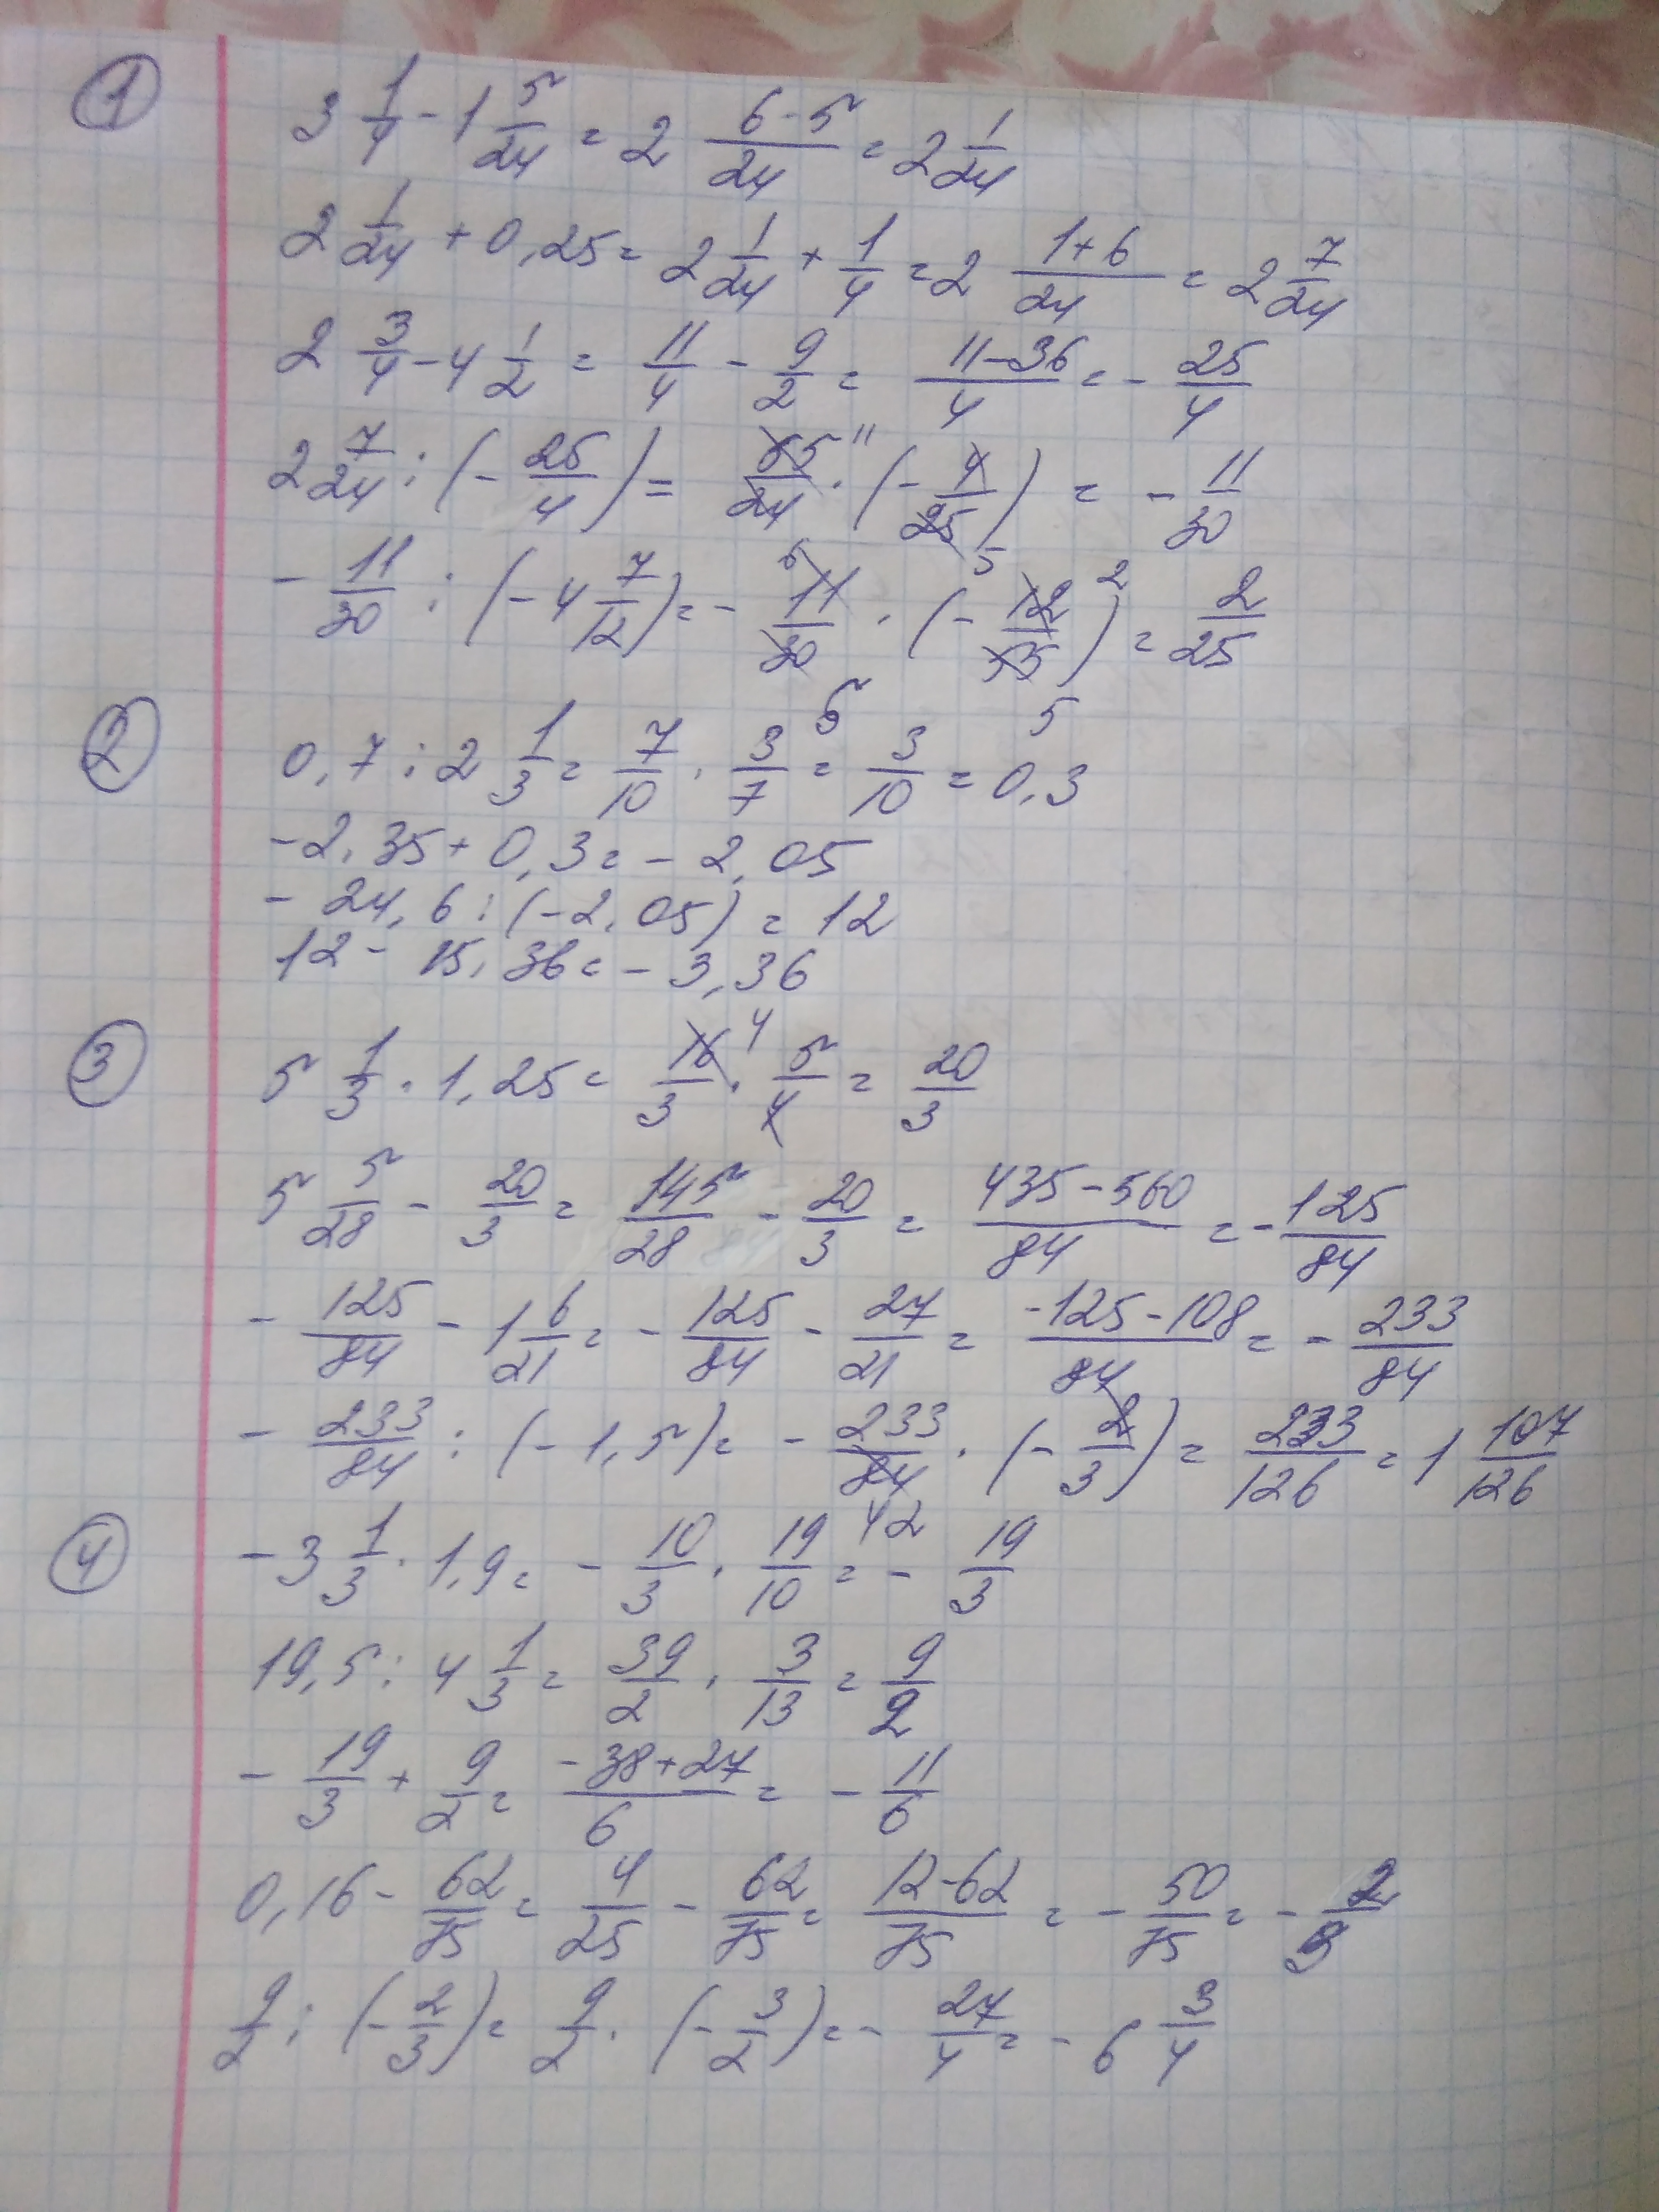 ① 3 1/4 - 1 5/24 = 2 (6-5)/24 = 2 1/24
2 1/24 + 0,25 = 2 1/24 + 1/4 = 2 (1+6)/24 = 2 7/24
2 3/4 - 4 1/2 = 11/4 - 9/2 = (11-36)/4 = - 25/4
2 7/24 : (- 25/4) = 55/24 · (- 4/25) = - 11/30
- 11/30 : (- 4 7/12) = - 11/30 · (- 12/55) = 2/25
② 0,7 : 2 1/3 = 7/10 · 3/7 = 3/10 = 0,3
-2,35 + 0,3 = - 2,05
- 24,6 : (-2,05) = 12
12 - 15,36 = - 3,36
③ 5 1/3 · 1,25 = 16/3 · 5/4 = 20/3
5 5/28 - 20/3 = 145/28 - 20/3 = (435-560)/84 = - 125/84
- 125/84 - 1 6/21 = - 125/84 - 27/21 = (-125-108)/84 = - 233/84
- 233/84 : (-1,5) = - 233/84 · (- 2/3) = 233/126 = 1 107/126
④ -3 1/3 · 1,9 = - 10/3 · 19/10 = - 19/3
19,5 : 4 1/3 = 39/2 · 3/13 = 9/2
- 19/3 + 9/2 = (-38+27)/6 = - 11/6
0,16 - 62/75 = 4/25 - 62/75 = (12-62)/75 = - 50/75 = - 2/3
9/2 : (- 2/3) = 9/2 · (- 3/2) = - 27/4 = - 6 3/4